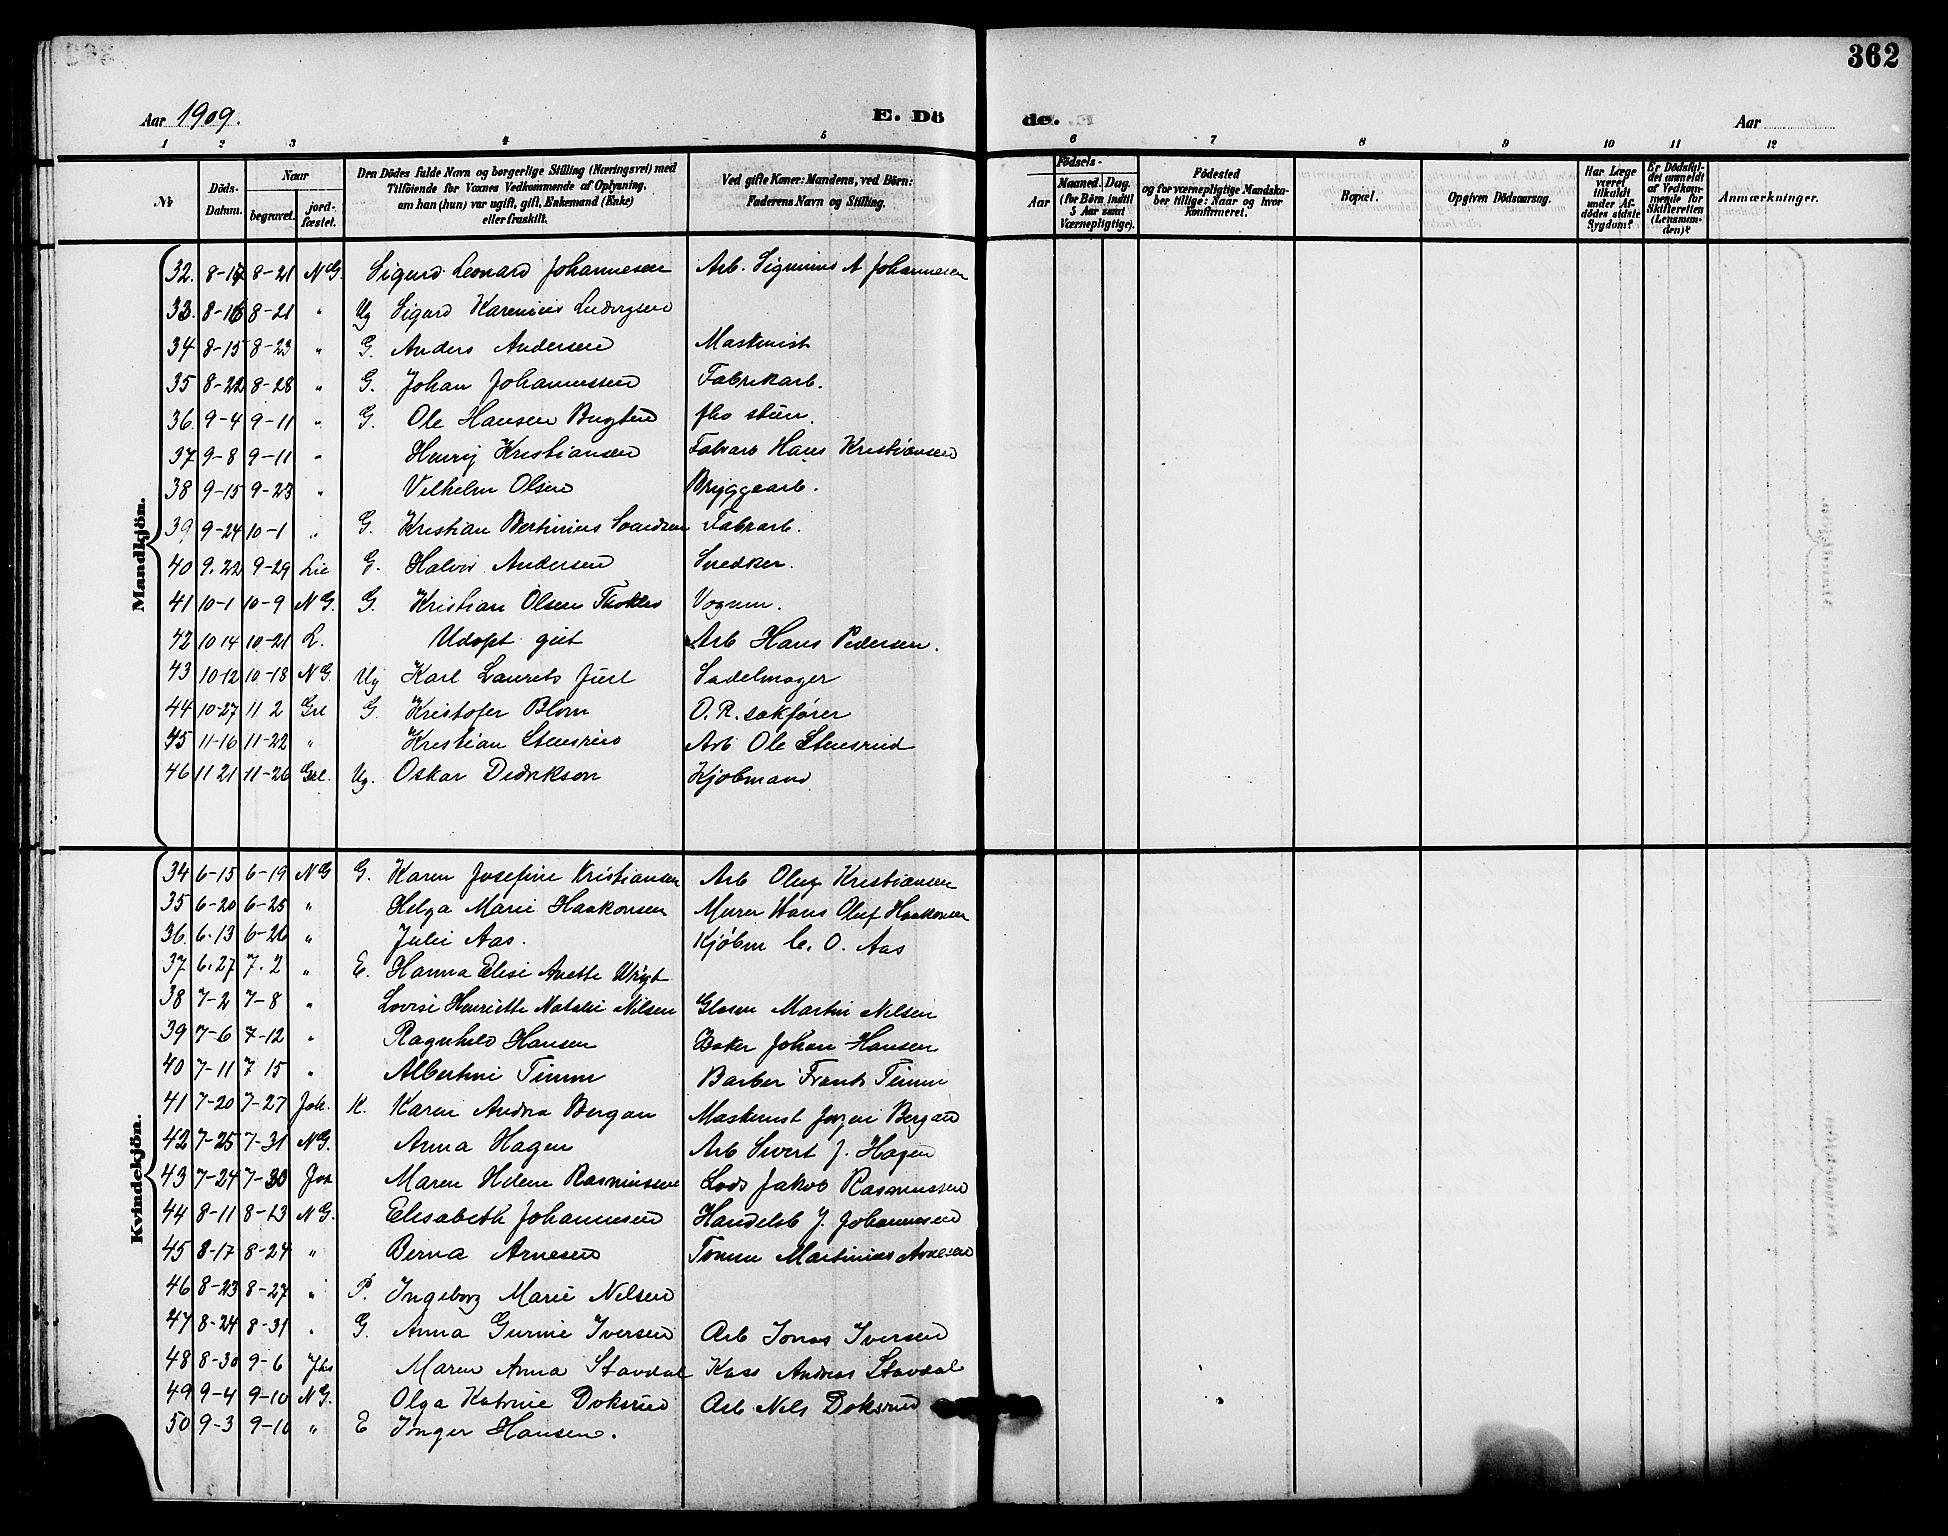 362
Aar 1909.
E. Dö
de.
Aar
1 2 3 4 5 6 7 8 9 10 11 12
No
Döds-Datum.
Naar
begravet.
jord-fæstet.
Den Dödes fulde Navn og borgerlige Stilling (Næringsvei) med
Tilföiende for Voxnes Vedkommende af Oplysning,
om han (hun) var ugift, gift, Enkemand (Enke)
eller fraskilt.
Ved gifte Koner: Mandens, ved Börn:
Faderens Navn og Stilling.
Födsels-
Aar
Maaned. Dag.
(for Börn indtil
5 Aar samt
Værnepligtige).
Födested
og for værnepligtige Mandska-
ber tillige: Naar og hvor
konfirmeret.
Bopæl.
Opgiven Dödsaarsag.
Har Læge
været
tilkaldt
under Af-
dödes sidste
Sygdom?
Er Dödsfal-
det anmeldt
af Vedkom-
mende for
Skifteretten
(Lensman-
den)?
Anmærkninger.
Mandkjön.
32. 8-17 8-21 NG. Sigurd Leonard Johannesen Arb. Sigmius A Johannesen
33. 8-16 8-21 " Ug Sigurd Karenius Ludvigsen
34 8-15 8-23 " G. Anders Andersen Maskinist
35 8-22 8-28 " G. Johan Johannessen Fabrikarb.
36. 9-4 9-11 " G. Ole Hansen Bugten
37 9-8 9-11 " Henry Kristiansen Fabrarb Hans Kristiansen
38 9-15 9-23 " Vilhelm Olsen Bryggearb.
39 9-24 10-1 " G. Kristian Bertinius Svendsen Fabrarb.
40 9.22 9-29 Lie G. Halvor Andersen Snedker.
41 10-1 10-9 NG. G. Kristian Olsen Vognm.
42 10 14 10-21 L. Udøpt gut Arb Hans Pedersen.
43 10-12 10-18 NG. Ug Karl Laurits Juel Sadelmager
44 10-27 11 2 Gre G. Kristofer Blom O.R.sakfører
45 11-16 11-22 " Kristian Stensrud Arb Ole Stensrud
46 11 21 11-26 Gre. Ug. Oskar Didrikson Kjøbmand
Kvindekjön.
34 6-15 6-19 NG G. Karen Josefine Kristiansen Arb Oluf Kristiansen
35 6-20 6-25 " Helga Marie Haakonsen Murer Hans Oluf Haakonsen
36. 6.13 6-26 " Julie Aas. Kjøbm C. O. Aas
37 6.27 7.2 " E. Hanna Elise Anette Wrigt
38 7-2 7-8 " Lovise Henriette Natalie Nilsen Glasm Martin Nilsen
39 7-6 7-12 " Ragnhild Hansen Baker Johan Hansen
40 7-11 7 15 " Albertine Timm Barber Frants Timm
41 7-20 7-27 Joh. K. Karen Andrea Bergan Maskinist Jørgen Bergan
42 7-25 7-31 NG. Anna Hagen Arb Sivert J. Hagen
43 7-24 7-30 Maren Helene Rasmussen Lods Jakob Rasmussen
44 8-11 8-13 NG. Elisabeth Johannesen Handelsb J. Johannesen
45 8-17 8-24 " Berna Arnesen Tømm Martinius Arnesen
46 8-23 8-27 " P. Ingeborg Marie Nilsen
47 8-24 8-31 " G. Anna Gurine Iversen Arb Jonas Iversen
48 8-30 9-6 Maren Anna Stavdal Kass Andreas Stavdal
49 9-4 9-10 NG. Olga Katrine Doksrud Arb Nils Doksrud
50 9-3 9-10 " E Inger Hansen.